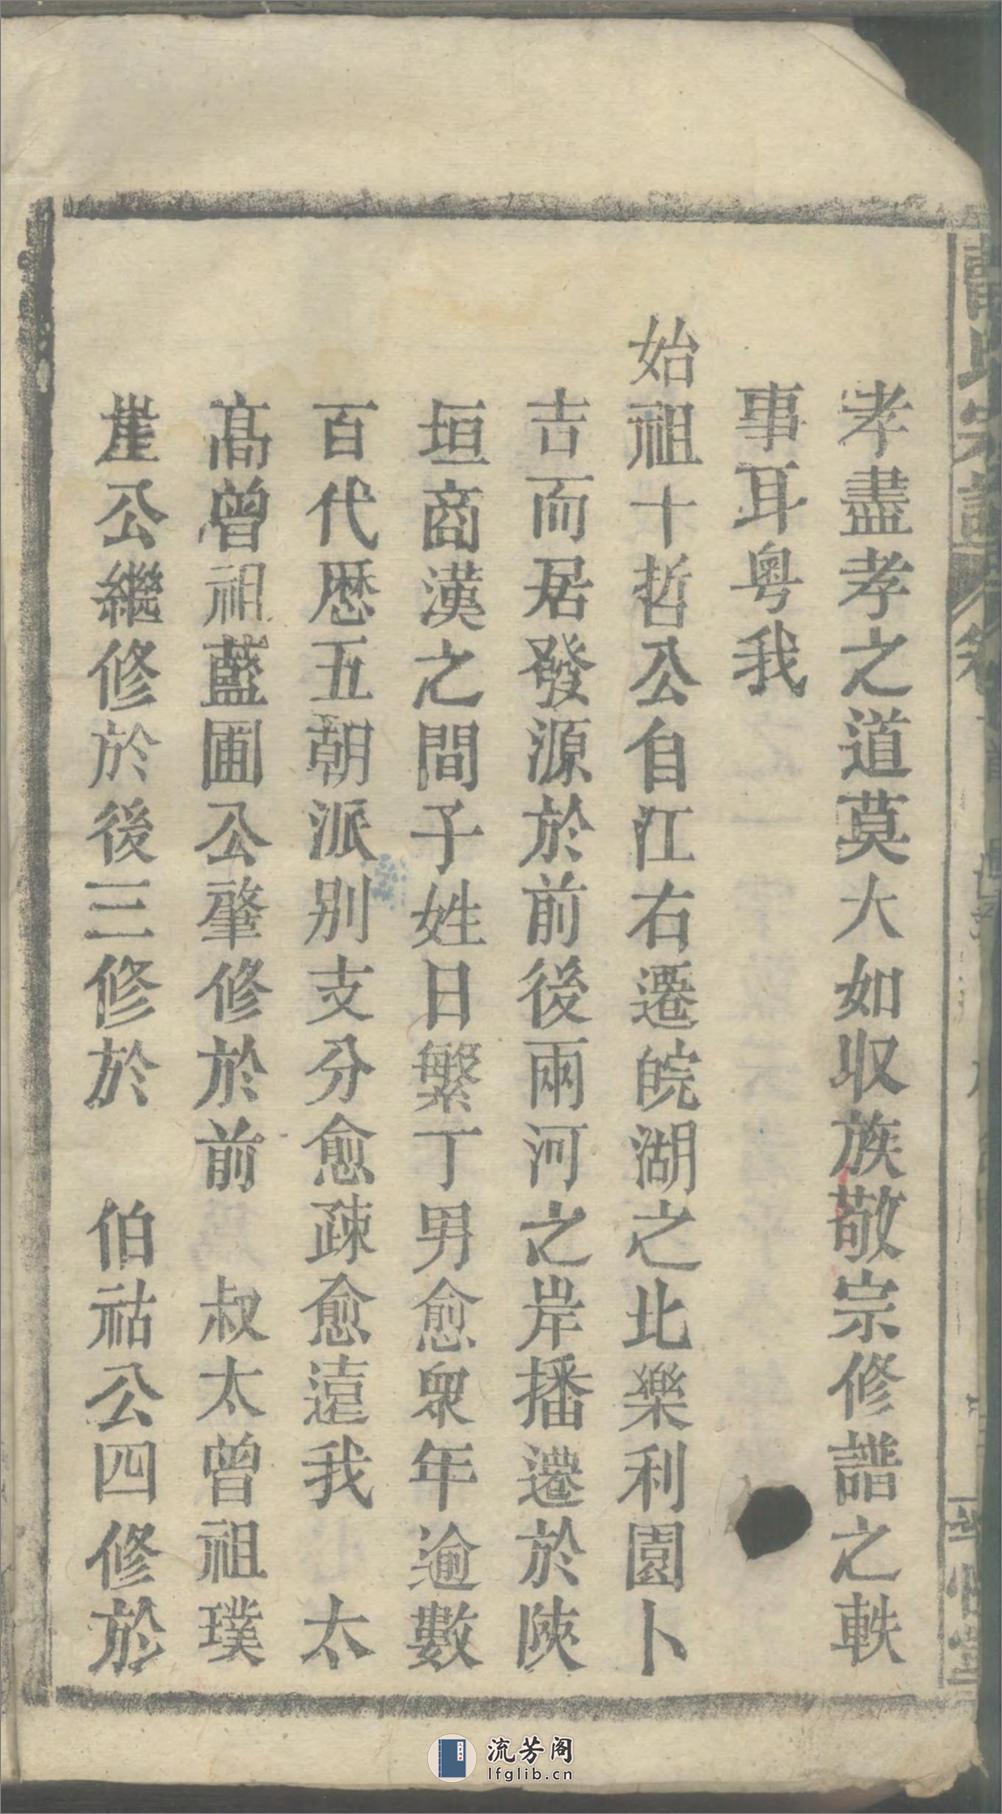 孝盡孝之道莫大如収族敬宗修譜之軼
事耳粤我
始祖十哲公自江右遷皖湖之北樂利園卜
吉而居發源於前後兩河之岸播遷於陝
垣商漢之間子姓日繁丁男愈眾年逾數
百代歷五朝派别支分愈疎愈遠我 太
高曾祖藍圃公肇修於前 叔太曾祖璞
崖公繼修於後三修於 伯祜公四修於
氏宗譜
流芳阁
lfglib.cn